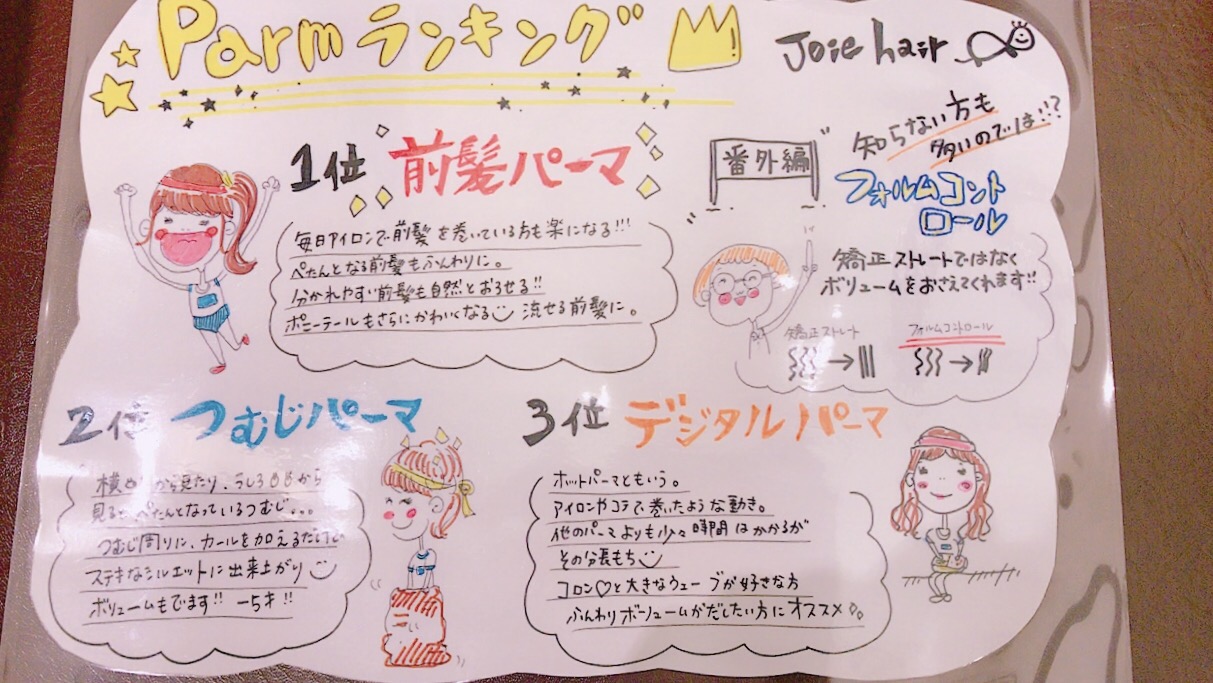 Parmランキング
Joie hair
1位 前髪パーマ
毎日アイロンで前髪を巻いている方も楽になる!!!
ぺたんとなる前髪もふんわりに。
分かれやすい前髪も自然とおろせる!!
ポニーテールもさらにかわいくなる 流せる前髪に。
番外編
知らない方も
多いのでは!!?
フォルムコント
ロール
矯正ストレートではなく
ボリュームをおさえてくれます!!
矯正ストレート
→
フォルムコントロール
→
2位 つむじパーマ
横 から見たり、うしろ から
見ると ぺたんとなっているつむじ...
つむじ周りに、カールを加えるだけで
ステキなシルエットに出来上がり
ボリュームもでます!! -5才!!
3位 デジタルパーマ
ホットパーマともいう。
アイロンやコテで巻いたような動き。
他のパーマよりも少々時間はかかるが
その分長もち
コロン♡と大きなウェーブが好きな方
ふんわりボーリュームがだしたい方にオススメ。